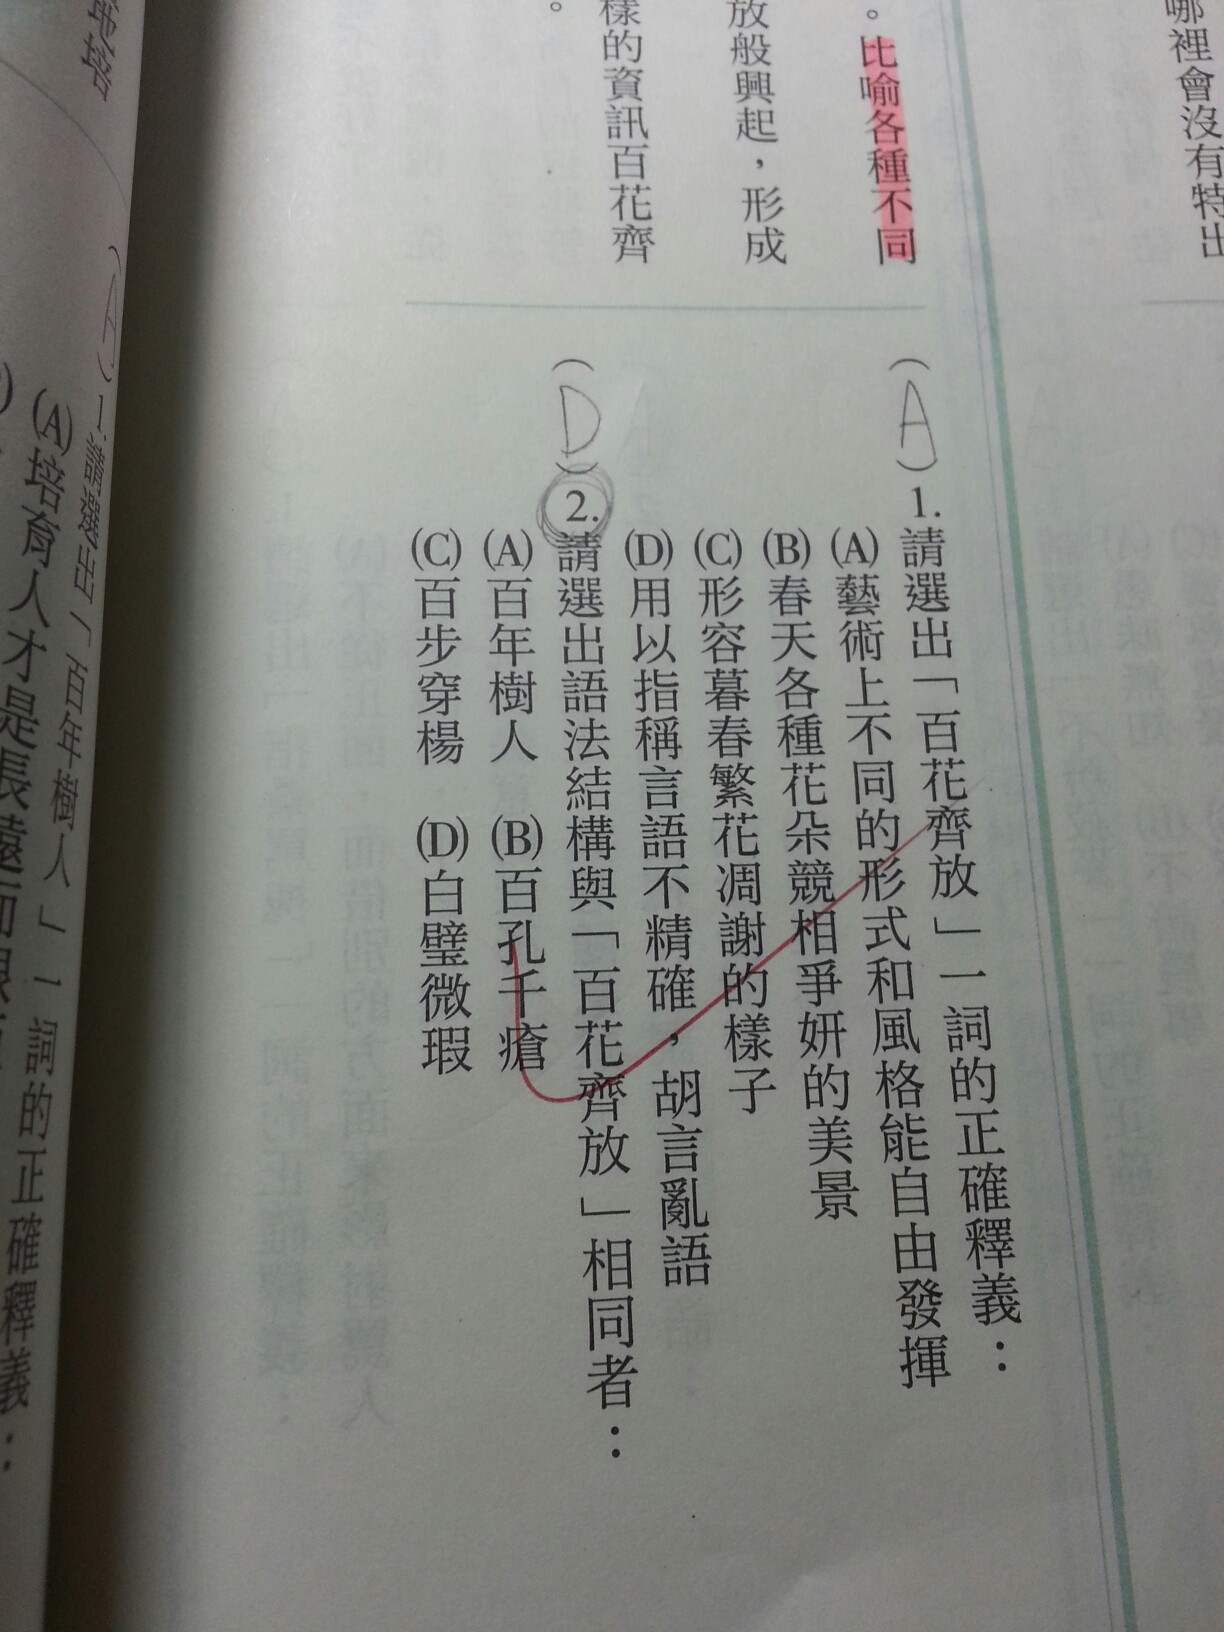 哪裡會沒有特出
。比喻各種不同
放般興起，形成
樣的資訊百花齊
。
(A) 1.請選出「百花齊放」一詞的正確釋義：
(A)藝術上不同的形式和風格能自由發揮
(B)春天各種花朵競相爭妍的美景
(C)形容暮春繁花凋謝的樣子
(D)用以指稱言語不精確，胡言亂語
(D) 2.請選出語法結構與「百花齊放」相同者：
(A)百年樹人 (B)百孔千瘡
(C)百步穿楊 (D)白璧微瑕
(A) 1.請選出「百年樹人」一詞的正確釋義：
(A)培育人才是長遠而